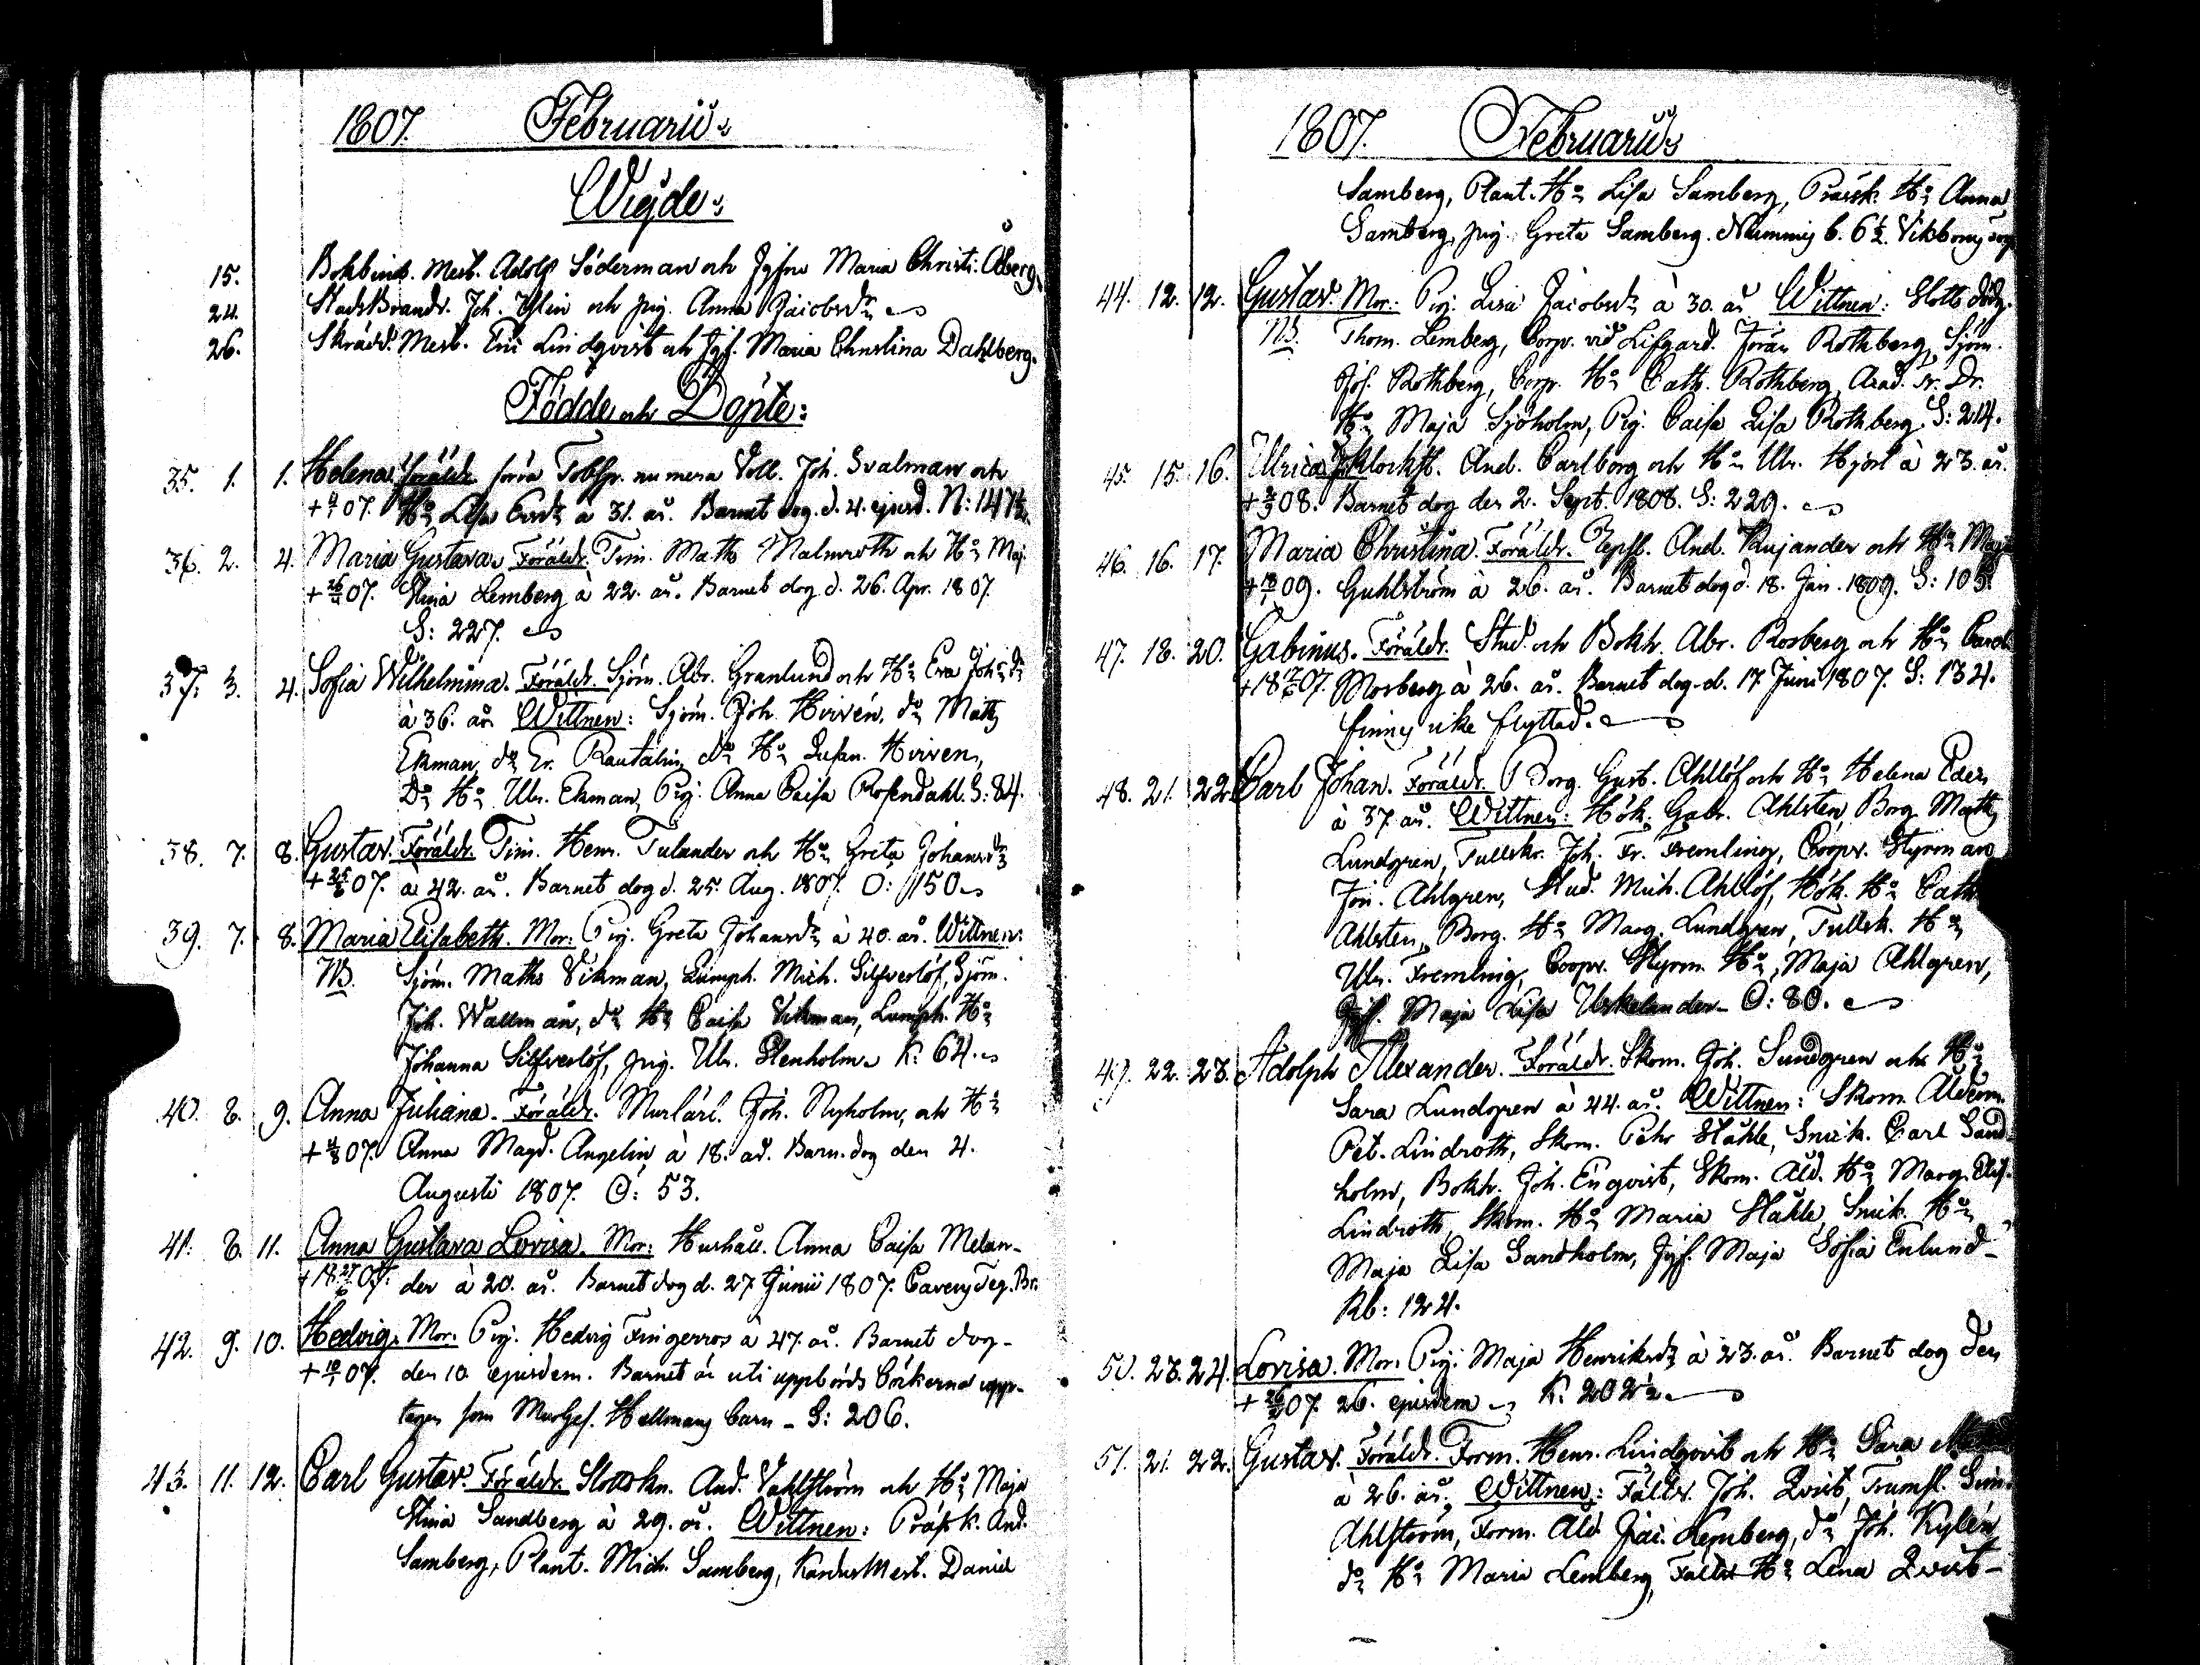 1807. Februarius
Wigde:
15. Bokbind. Mest. Adolf Söderman och Jgfru Maria Christ: Åberg.
24. StadsBrandv. Joh. Ylein och pig. Anna Jacobsdr
26. Skrädd. Mest. Eric Lindqvist och Jgf. Maria Christina Dahlberg.
Födde och Döpte:
35. 1. 1. Helena. Föräldr. förra Tobspr. numera Voll. Joh. Svalman och
+ 4/2 07. Hu Lisa Ersdr à 31. år. Barnet dog d. 4. ejusd. N: 147½.
36. 2. 4. Maria Gustava. Föräldr. Tim. Maths Malmroth och Hu Maj
+ 26/4 07. Stina Lemberg à 22. år. Barnet dog d. 26. Apr. 1807.
S: 227.
37. 3. 4. Sofia Wilhelmina. Föräldr. Sjöm. Abr. Granlund och Hu Eva Johsdr
à 36. år. Wittnen: Sjöm. Joh. Hirvén, do Matts
Ekman, do Er. Rautalin, do Hu Susan. Hirven,
Do Hu Ulr. Ekman, Pig. Anna Caisa Rosendahl. S: 84.
38. 7. 8. Gustav. Föräldr. Tim. Henr. Tulander och Hu Greta Johansdr
+ 25/8 07. à 42. år. Barnet dog d. 25. Aug. 1807. O: 150
39. 7. 8. Maria Elisabeth. Mor: Pig. Greta Johansdr à 40. år. Wittnen:
NB. Sjöm. Maths Vikman, Lumph. Mich. Silfverlöf, Sjöm.
Joh. Wallman, do Hu Caisa Vikman, Lumph. Hu
Johanna Silfverlöf, pig. Ulr. Stenholm. K: 64.
40. 8. 9. Anna Juliana. Föräldr. Murlärl. Joh. Nyholm, och Hu
+ 4/8 07. Anna Magd. Angelin à 18. år. Barn. dog den 4.
Augusti 1807. O: 53.
41. 8. 11. Anna Gustava Lovisa. Mor: Hushåll. Anna Caisa Melan-
+ 18 27/6 07. der à 20. år. Barnet dog d. 27. Junii 1807. Caveny Teg. Br.
42. 9. 10. Hedvig. Mor: Pig. Hedvig Fingerroos à 47. år. Barnet dog
+ 10/ 07. den 10. ejusdem. Barnet är uti uppbörds böckerna upp-
tagen som MurGes. Hellmans barn - S: 206.
43. 11. 12. Carl Gustav. Föräldr. Slottskn. And. Vahlström och Hu Maja
Stina Sandberg à 29. år. Wittnen: Präsk. And.
Samberg, Plant. Mich. Samberg, KardusMest. Daniel
1807. Februarius
Samberg, Plant. Hu Lisa Samberg, Präsk. Hu Anna
Samberg, pig. Greta Samberg. Nummis b. 6½.
44. 12. 12. Gustav. Mor: Pig. Lisa Jacobsdr à 30. år. Wittnen: Slotts
NB. Thom. Lemberg, Corp. vid Lifgard. Jöran Rothberg, Sjöm.
Jos. Rothberg, Corp. Hu Cath. Rothberg, Acad. Tr. Dr.
Hu Maja Sjöholm, Pig. Caisa Lisa Rothberg. S: 214.
45. 15. 16. Ulrica. Klockst. And. Carlborg och Hu Ulr. Hjort à 23. år.
+ 2/9 08. Barnet dog den 2. Sept. 1808. S: 229.
46. 16. 17. Maria Christina. Föräldr. And. Kujander och Hu Maja
+ 18/1 09. Guhlström à 26. år. Barnet dog d. 18. Jan. 1809. S: 105.
47. 18. 20. Gabinus. Föräldr. Stud. och Bokh. Abr. Rosberg och Hu Carol
+ 18 17/6 07. Mosberg à 26. år. Barnet dog d. 17. Juni 1807. S: 134.
finns icke flyttad.
48. 21. 22. Carl Johan. Föräldr. Borg. Gust. Ahllöf och Hu Helena Eder
à 37. år. Wittnen: Hök. Gabr. Ahlsten, Borg. Matts
Lundgren, Tullskr. Joh. Fr. Fremling, Coopv. Styrman
Jon. Ahlgren, Stud. Mich. Ahllöf, Hök. Hu Cath
Ahlsten, Borg. Hu Marg. Lundgren, Tullsk. Hu
Ulr. Fremling, Coopv. Styrm. Hu Maja Ahlgren,
Jgf. Maja Lisa Urkelander. O: 80.
49. 22. 23. Adolph Alexander. Föräldr. Skom. Joh. Sundgren och Hu
Sara Lundgren à 44. år. Wittnen: Skom. Ålderm.
Pet. Lindroth, Skom. Pehr Ståhle, Snick. Carl Sand-
holm, Bokh. Joh. Enqvist, Skom. Åld. Hu Marg. Elis.
Lindroth, Skom. Hu Maria Ståhle, Snick. Hu
Maja Lisa Sandholm, Jgf. Maja Sofia Enlund
Kb: 124.
50. 23. 24. Lovisa. Mor: Pig. Maja Henriksdr à 23. år. Barnet dog den
+ 26/2 07. 26. ejusdem K: 202½.
51. 21. 22. Gustav. Föräldr. Form. Henr. Lindqvist och Hu Sara
à 26. år. Wittnen: Fältv. Joh. Qvist, Trumsl. Sim.
Ahlström, Form. Åld. Jac. Lemberg, do Joh. Kylén
do Hu Maria Lemberg, Fältv. Hu Lena Qvist